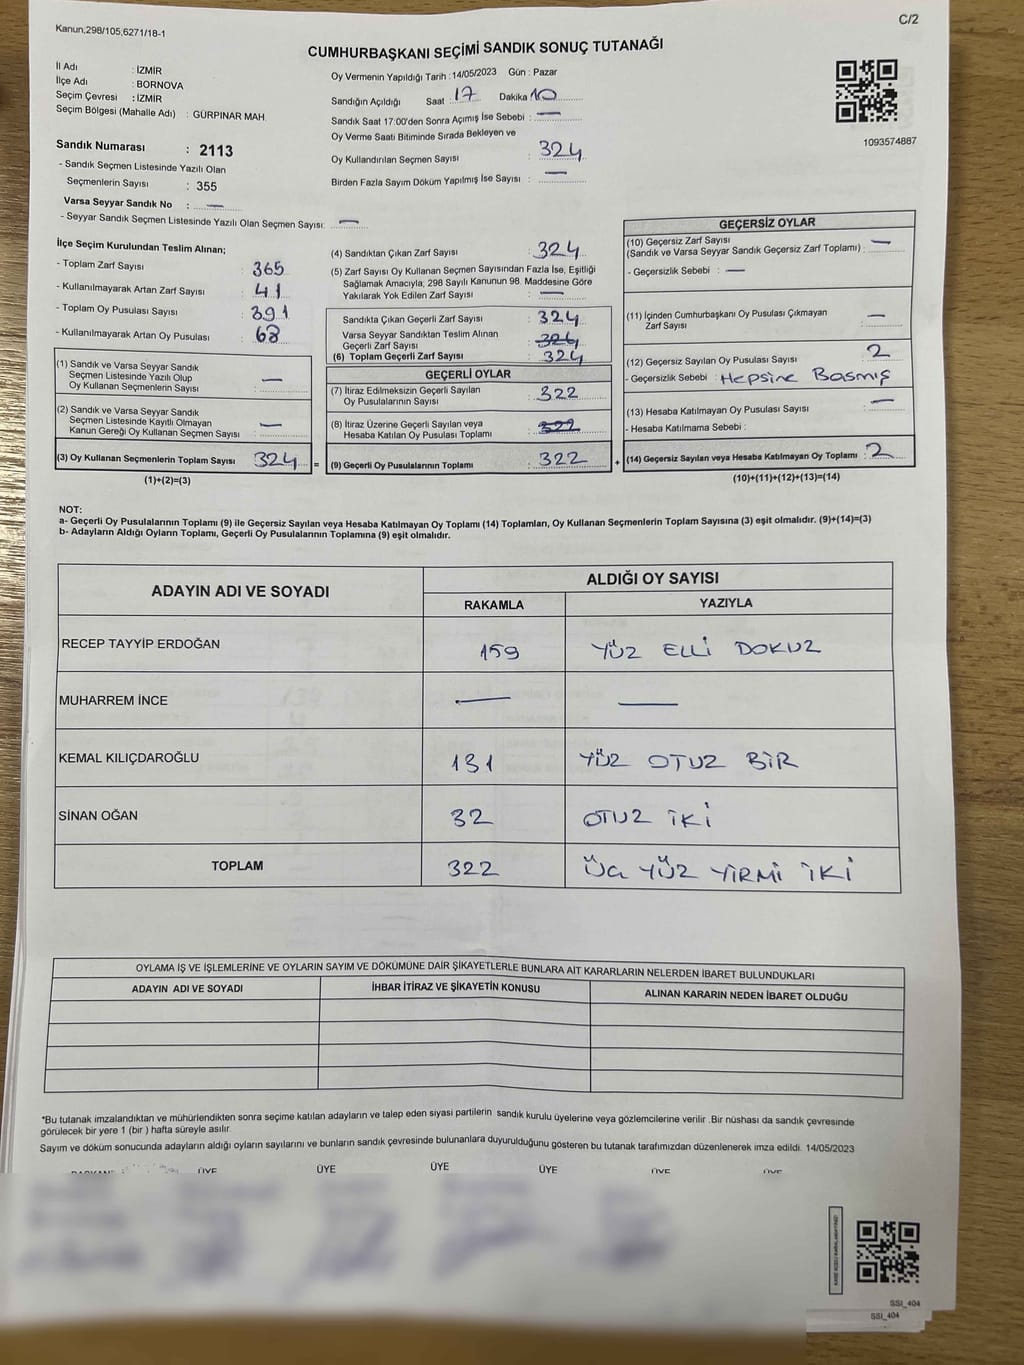 Kanun,298/105,6271/18-1
C/2
CUMHURBAŞKANI SEÇİMİ SANDIK SONUÇ TUTANAĞI
İl Adı : İZMİR
İlçe Adı : BORNOVA
Seçim Çevresi : İZMİR
Seçim Bölgesi (Mahalle Adı) : GÜRPINAR MAH.
Oy Vermenin Yapıldığı Tarih : 14/05/2023 Gün : Pazar
Sandığın Açıldığı Saat : 17 Dakika 10
Sandık Saat 17:00'den Sonra Açımış İse Sebebi : —
Oy Verme Saati Bitiminde Sırada Bekleyen ve
Oy Kullandırılan Seçmen Sayısı : 324
Birden Fazla Sayım Döküm Yapılmış İse Sayısı : —
1093574887
Sandık Numarası : 2113
- Sandık Seçmen Listesinde Yazılı Olan
Seçmenlerin Sayısı : 355
Varsa Seyyar Sandık No : —
- Seyyar Sandık Seçmen Listesinde Yazılı Olan Seçmen Sayısı: —
İlçe Seçim Kurulundan Teslim Alınan;
- Toplam Zarf Sayısı : 365
- Kullanılmayarak Artan Zarf Sayısı : 41
- Toplam Oy Pusulası Sayısı : 391
- Kullanılmayarak Artan Oy Pusulası : 68
(1) Sandık ve Varsa Seyyar Sandık
Seçmen Listesinde Yazılı Olup
Oy Kullanan Seçmenlerin Sayısı : —
(2) Sandık ve Varsa Seyyar Sandık
Seçmen Listesinde Kayıtlı Olmayan
Kanun Gereği Oy Kullanan Seçmen Sayısı : —
(3) Oy Kullanan Seçmenlerin Toplam Sayısı 324 =
(1)+(2)=(3)
(4) Sandıktan Çıkan Zarf Sayısı : 324
(5) Zarf Sayısı Oy Kullanan Seçmen Sayısından Fazla İse, Eşitliği
Sağlamak Amacıyla, 298 Sayılı Kanunun 98. Maddesine Göre
Yakılarak Yok Edilen Zarf Sayısı : —
Sandıkta Çıkan Geçerli Zarf Sayısı : 324
Varsa Seyyar Sandıktan Teslim Alınan
Geçerli Zarf Sayısı : 324
(6) Toplam Geçerli Zarf Sayısı : 324
GEÇERLİ OYLAR
(7) İtiraz Edilmeksizin Geçerli Sayılan
Oy Pusulalarının Sayısı : 322
(8) İtiraz Üzerine Geçerli Sayılan veya
Hesaba Katılan Oy Pusulası Toplamı : 322
(9) Geçerli Oy Pusulalarının Toplamı : 322 +
GEÇERSİZ OYLAR
(10) Geçersiz Zarf Sayısı
(Sandık ve Varsa Seyyar Sandık Geçersiz Zarf Toplamı) : —
- Geçersizlik Sebebi : —
(11) İçinden Cumhurbaşkanı Oy Pusulası Çıkmayan
Zarf Sayısı : —
(12) Geçersiz Sayılan Oy Pusulası Sayısı : 2
- Geçersizlik Sebebi : Hepsine Basmış
(13) Hesaba Katılmayan Oy Pusulası Sayısı : —
- Hesaba Katılmama Sebebi :
(14) Geçersiz Sayılan veya Hesaba Katılmayan Oy Toplamı : 2
(10)+(11)+(12)+(13)=(14)
NOT:
a- Geçerli Oy Pusulalarının Toplamı (9) ile Geçersiz Sayılan veya Hesaba Katılmayan Oy Toplamı (14) Toplamları, Oy Kullanan Seçmenlerin Toplam Sayısına (3) eşit olmalıdır. (9)+(14)=(3)
b- Adayların Aldığı Oyların Toplamı, Geçerli Oy Pusulalarının Toplamına (9) eşit olmalıdır.
ADAYIN ADI VE SOYADI
ALDIĞI OY SAYISI
RAKAMLA YAZIYLA
RECEP TAYYİP ERDOĞAN 159 YÜZ ELLİ DOKUZ
MUHARREM İNCE — —
KEMAL KILIÇDAROĞLU 131 YÜZ OTUZ BİR
SİNAN OĞAN 32 OTUZ İKİ
TOPLAM 322 ÜÇ YÜZ YİRMİ İKİ
OYLAMA İŞ VE İŞLEMLERİNE VE OYLARIN SAYIM VE DÖKÜMÜNE DAİR ŞİKAYETLERLE BUNLARA AİT KARARLARIN NELERDEN İBARET BULUNDUKLARI
ADAYIN ADI VE SOYADI İHBAR İTİRAZ VE ŞİKAYETİN KONUSU ALINAN KARARIN NEDEN İBARET OLDUĞU
*Bu tutanak imzalandıktan ve mühürlendikten sonra seçime katılan adayların ve talep eden siyasi partilerin sandık kurulu üyelerine veya gözlemcilerine verilir .Bir nüshası da sandık çevresinde
görülecek bir yere 1 (bir ) hafta süreyle asılır.
Sayım ve döküm sonucunda adayların aldığı oyların sayılarını ve bunların sandık çevresinde bulunanlara duyurulduğunu gösteren bu tutanak tarafımızdan düzenlenerek imza edildi. 14/05/2023
ÜYE ÜYE ÜYE ÜYE ÜYE ÜYE
SSI_404
SSI_404